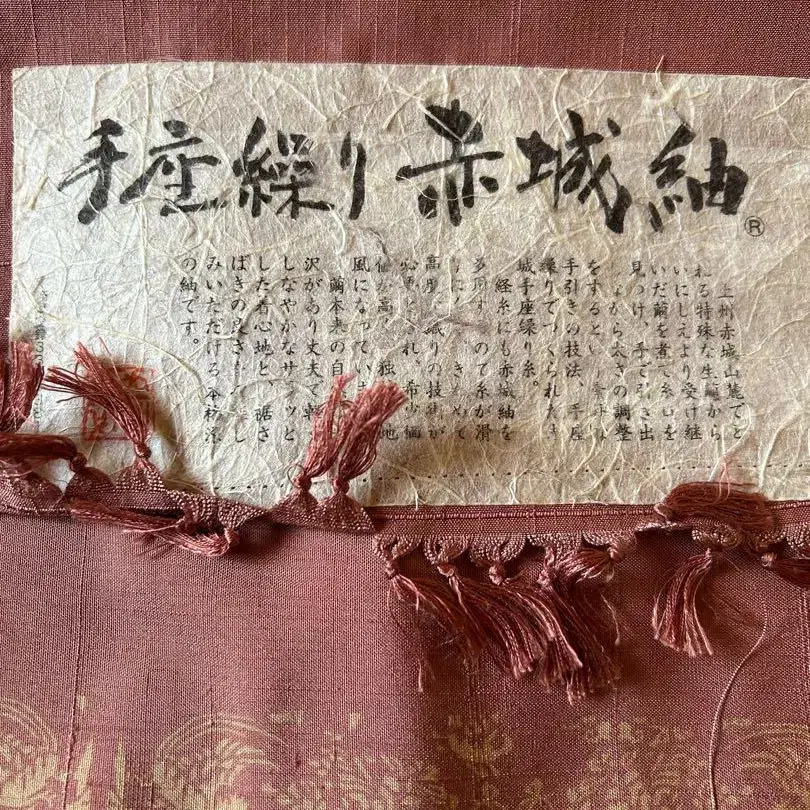 手座繰り赤城紬®
上州赤城山麓でと
れる特殊な生繭から
いにしえより受け継
いだ繭を煮て糸口を
見つけ、手で引き出
しながら太さの調整
をするという
手引きの技法、手座
繰りでつくられた赤
城手座繰り糸。
経糸にも赤城紬を
多用するので糸が滑
りにくく きわめて
高度な織りの技術が
必要とされ、希少価
値が高く、独特の地
風になっています
繭本来の自
沢があり丈夫で軽
しなやかなサラッと
した着心地と、裾さ
ばきの良さを し
みいただける本格派
の紬です。